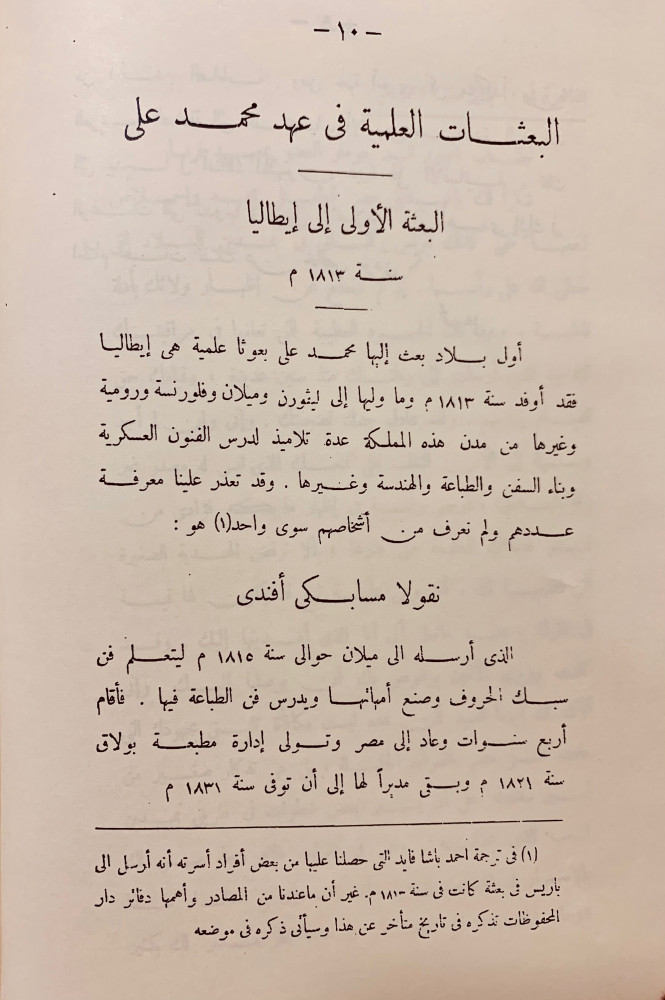 — ١٠ —
البعثات العلمية فى عهد محمد على
البعثة الأولى إلى إيطاليا
سنة ١٨١٣ م
أول بلاد بعث إليها محمد على بعوثا علمية هى إيطاليا
فقد أوفد سنة ١٨١٣ م وما وليها إلى ليثورن وميلان وفلورنسة ورومية
وغيرها من مدن هذه المملكة عدة تلاميذ لدرس الفنون العسكرية
وبناء السفن والطباعة والهندسة وغيرها . وقد تعذر علينا معرفة
عددهم ولم نعرف من أشخاصهم سوى واحد(١) هو :
نقولا مسابكى أفندى
الذى أرسله الى ميلان حوالى سنة ١٨١٥ م ليتعلم فن
سبك الحروف وصنع أمهاتها ويدرس فن الطباعة فيها . فأقام
أربع سنوات وعاد إلى مصر وتولى إدارة مطبعة بولاق
سنة ١٨٢١ م وبقى مديراً لها إلى أن توفى سنة ١٨٣١ م
(١) فى ترجمة احمد باشا فايد التى حصلنا عليها من بعض أفراد أسرته أنه أرسل الى
باريس فى بعثة كانت فى سنة ١٨١٠ م. غير أن ماعندنا من المصادر وأهمها دفاتر دار
المحفوظات تذكره فى تاريخ متأخر عن هذا وسيأتى ذكره فى موضعه